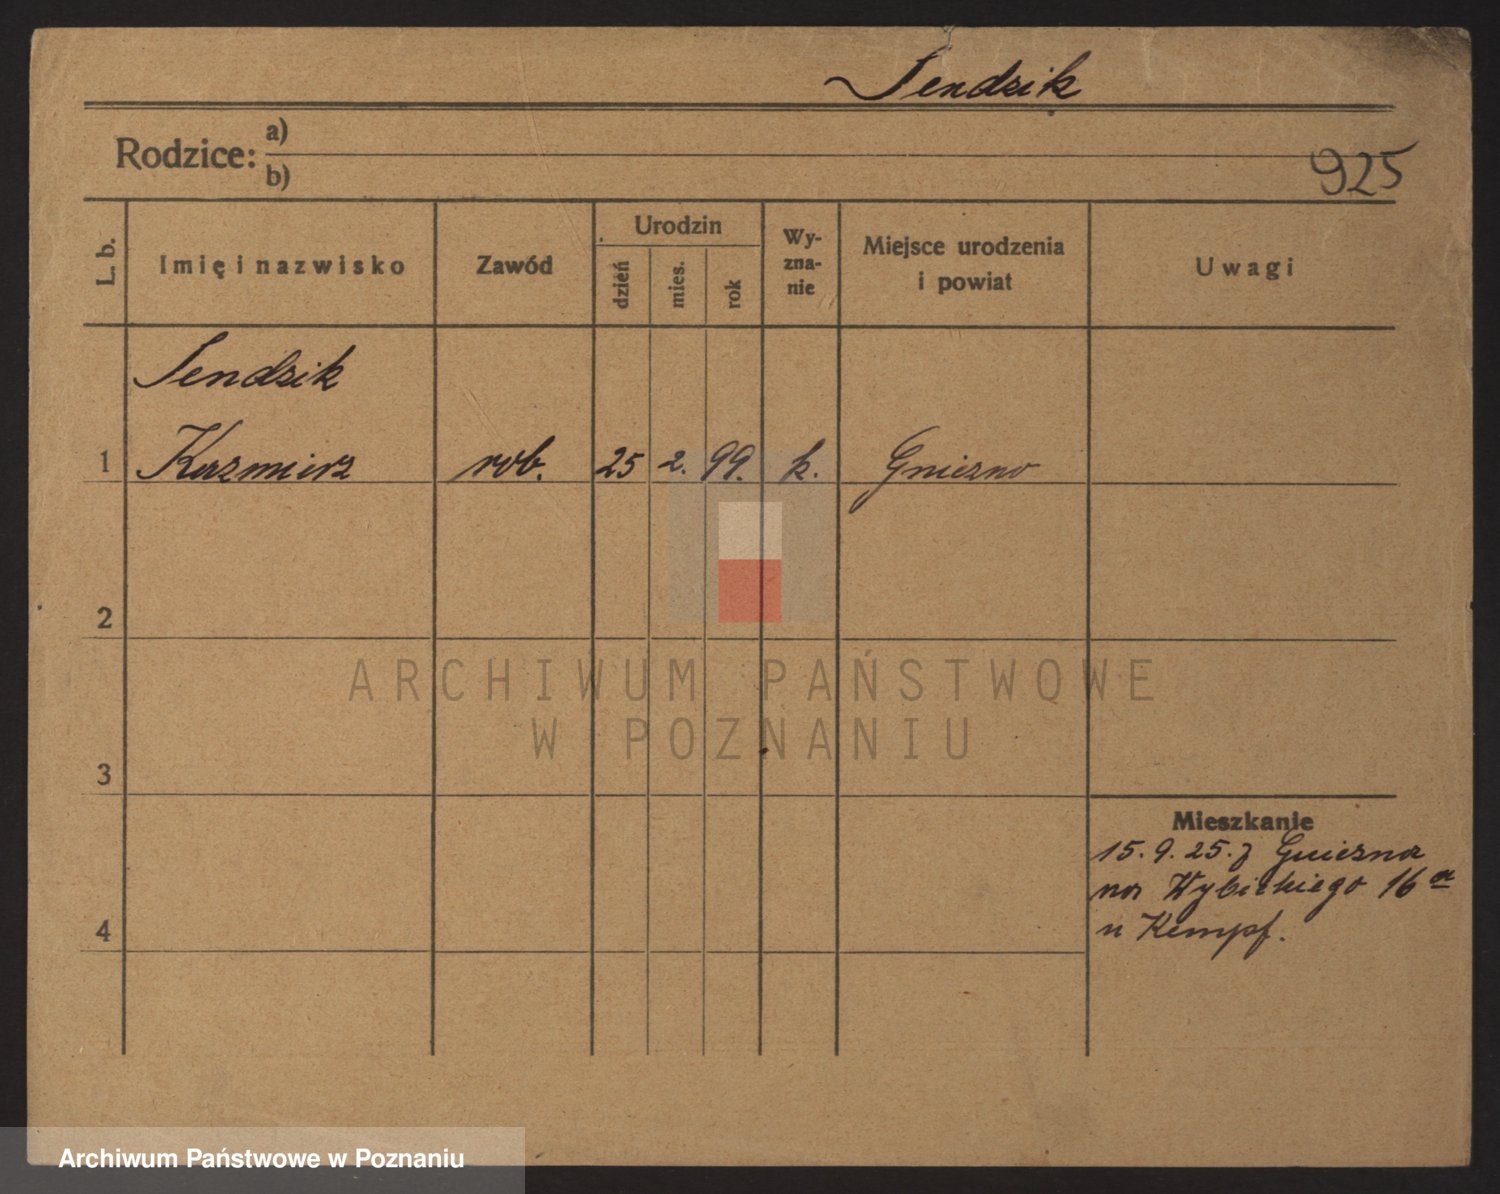 Sendzik
Rodzice: a)
b)
925
L. b. Imię i nazwisko Zawód Urodzin dzień mies. rok Wy-zna-nie Miejsce urodzenia i powiat Uwagi
Sendzik
1 Kazmierz rob. 25 2. 99. k. Gniezno
2
ARCHIWUM PAŃSTWOWE
W POZNANIU
3
Mieszkanie
15.9.25. z Gniezna
na Wybickiego 16a
4 u Kempf.
Archiwum Państwowe w Poznaniu